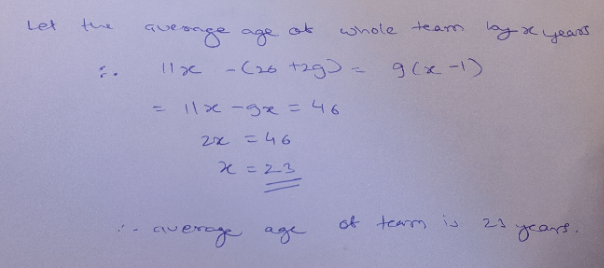 Let the average age of whole team by x years
∴ 11x - (26 + 29) = 9(x - 1)
= 11x - 9x = 46
2x = 46
x = 23
∴ average age of team is 23 years.